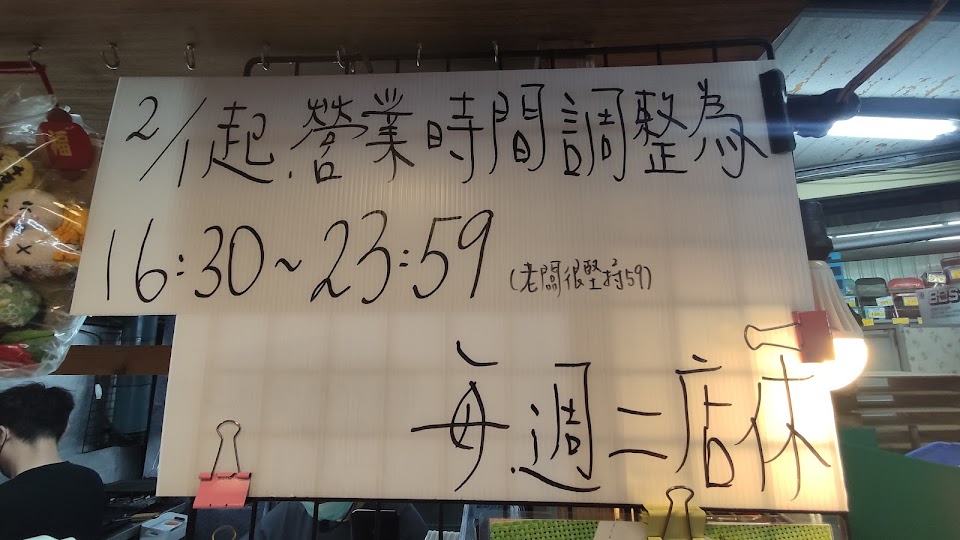 2/1起.營業時間調整為
16:30~23:59 (老闆很堅持59)
每週二店休
福